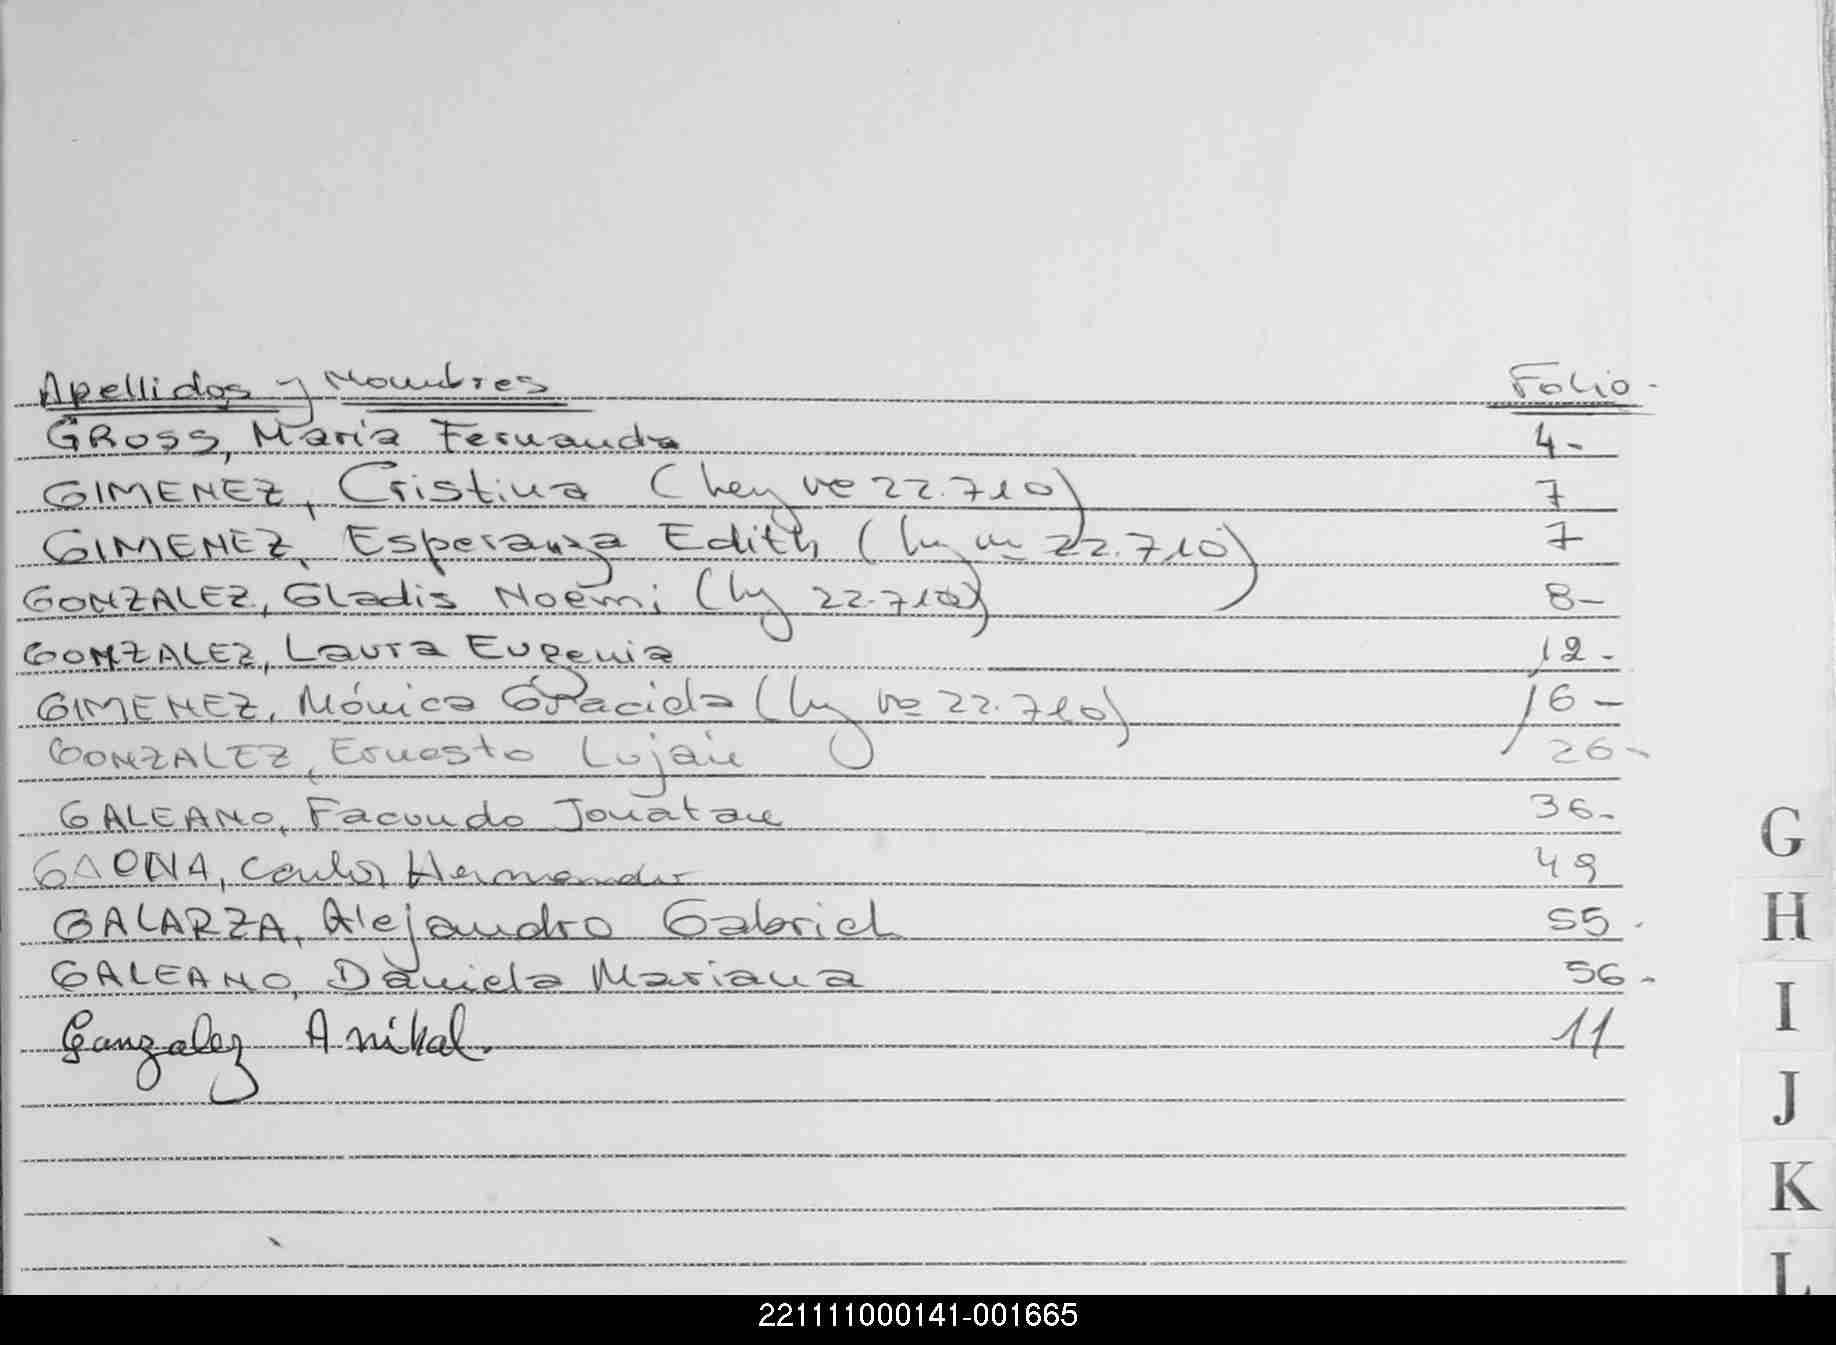 Apellidos y Nombres Folio -
GROSS, María Fernanda 4 -
GIMENEZ, Cristina (Ley nº 22.710) 7
GIMENEZ, Esperanza Edith (Ley nº 22.710) 7
GONZALEZ, Gladis Noemí (Ley 22.710) 8 -
GONZALEZ, Laura Eugenia 12 -
GIMENEZ, Mónica (Ley nº 22.710) 16 -
GONZALEZ, Ernesto Luján 26 -
GALEANO, Facundo Jonatan 36 -
GAONA, Carlos 49
GALARZA, Alejandro Gabriel 55 -
GALEANO, Daniela Mariana 56 -
Gonzalez Anibal. 11
G
H
I
J
K
L
221111000141-001665